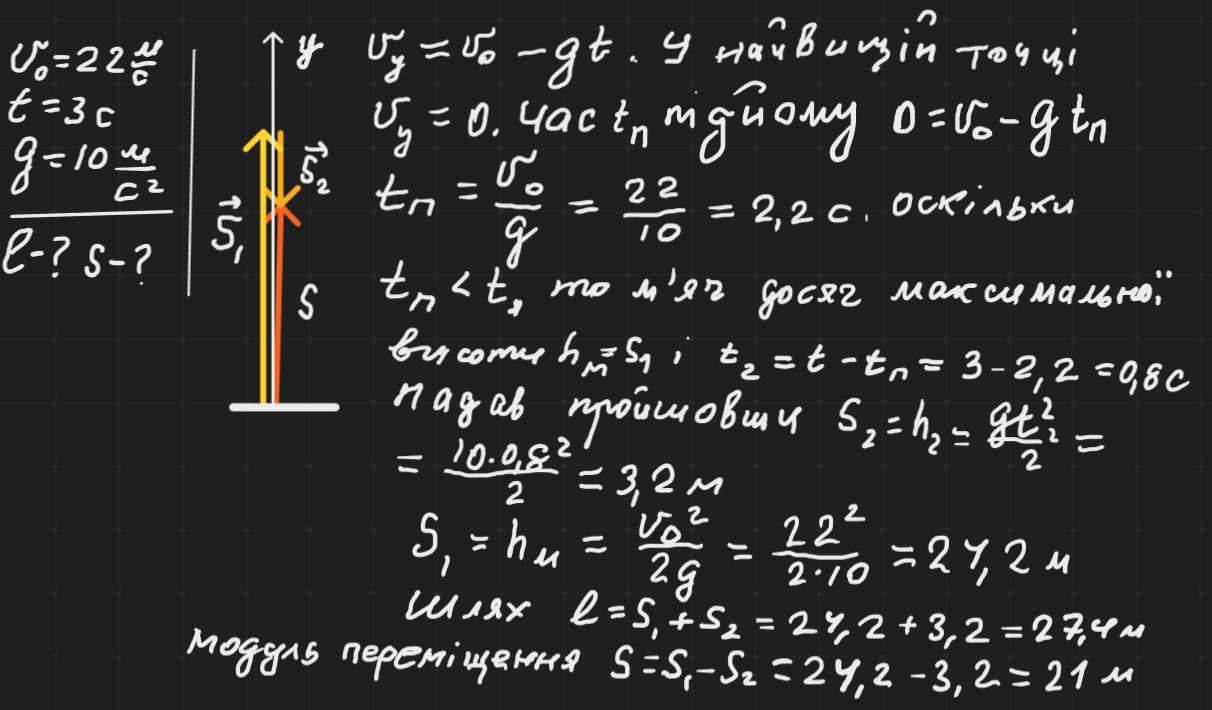 v₀ = 22 м/с
t = 3 с
g = 10 м/с²
ℓ - ? S - ?
y
S⃗₁
S⃗₂
S
v_y = v₀ - gt. У найвищій точці
v_y = 0. Час t_п підйому 0 = v₀ - g t_п
t_п = v₀/g = 22/10 = 2,2 с. оскільки
t_п < t, то м'яч досяг максимальної
висоти h_м = S₁ і t₂ = t - t_п = 3 - 2,2 = 0,8 с
падав пройшовши S₂ = h₂ = gt₂²/2 =
= 10·0,8²/2 = 3,2 м
S₁ = h_м = v₀²/2g = 22²/2·10 = 24,2 м
шлях ℓ = S₁ + S₂ = 24,2 + 3,2 = 27,4 м
модуль переміщення S = S₁ - S₂ = 24,2 - 3,2 = 21 м